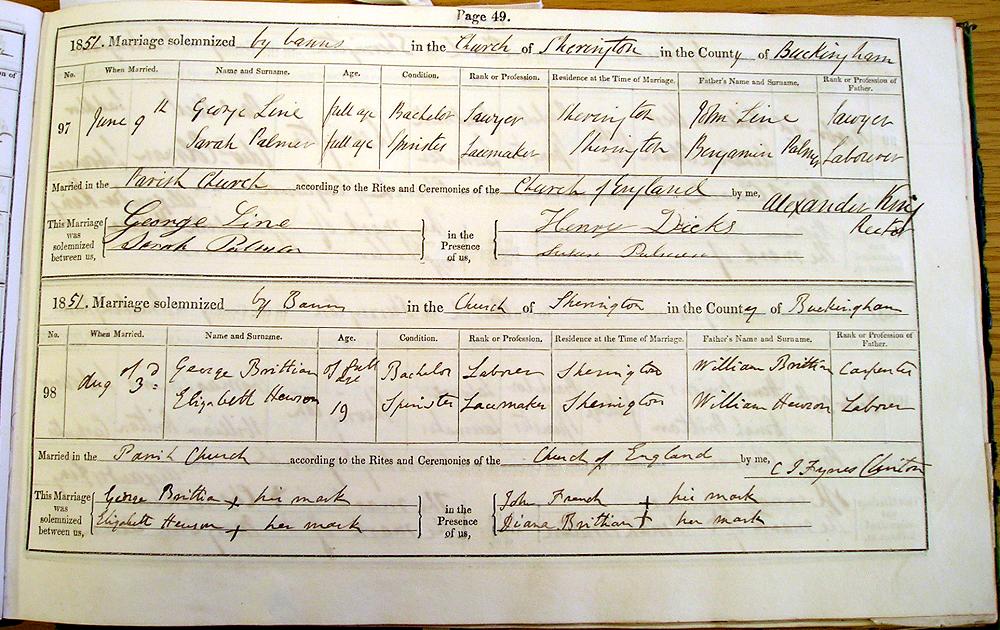 Page 49.
1851. Marriage solemnized by banns in the Church of Sherington in the County of Buckingham
No. When Married. Name and Surname. Age. Condition. Rank or Profession. Residence at the Time of Marriage. Father's Name and Surname. Rank or Profession of Father.
97 June 9th George Line full age Bachelor Sawyer Sherington John Line Sawyer
Sarah Palmer full age Spinster Lacemaker Sherington Benjamin Palmer Labourer
Married in the Parish Church according to the Rites and Ceremonies of the Church of England by me, Alexander King
Rector
This Marriage was solemnized between us, George Line in the Presence of us, Henry Dicks
Sarah Palmer Susan Palmer
1851. Marriage solemnized by Banns in the Church of Sherrington in the County of Buckingham
No. When Married. Name and Surname. Age. Condition. Rank or Profession. Residence at the Time of Marriage. Father's Name and Surname. Rank or Profession of Father.
98 Aug of 3d George Brittian of full age Bachelor Laborer Sherrington William Brittian Carpenter
Elizabeth Hewson 19 Spinster Lacemaker Sherrington William Hewson Laborer
Married in the Parish Church according to the Rites and Ceremonies of the Church of England by me, C J Fynes Clinton
This Marriage was solemnized between us, George Brittian + his mark in the Presence of us, John French + his mark
Elizabeth Hewson + her mark Diana Brittian + her mark